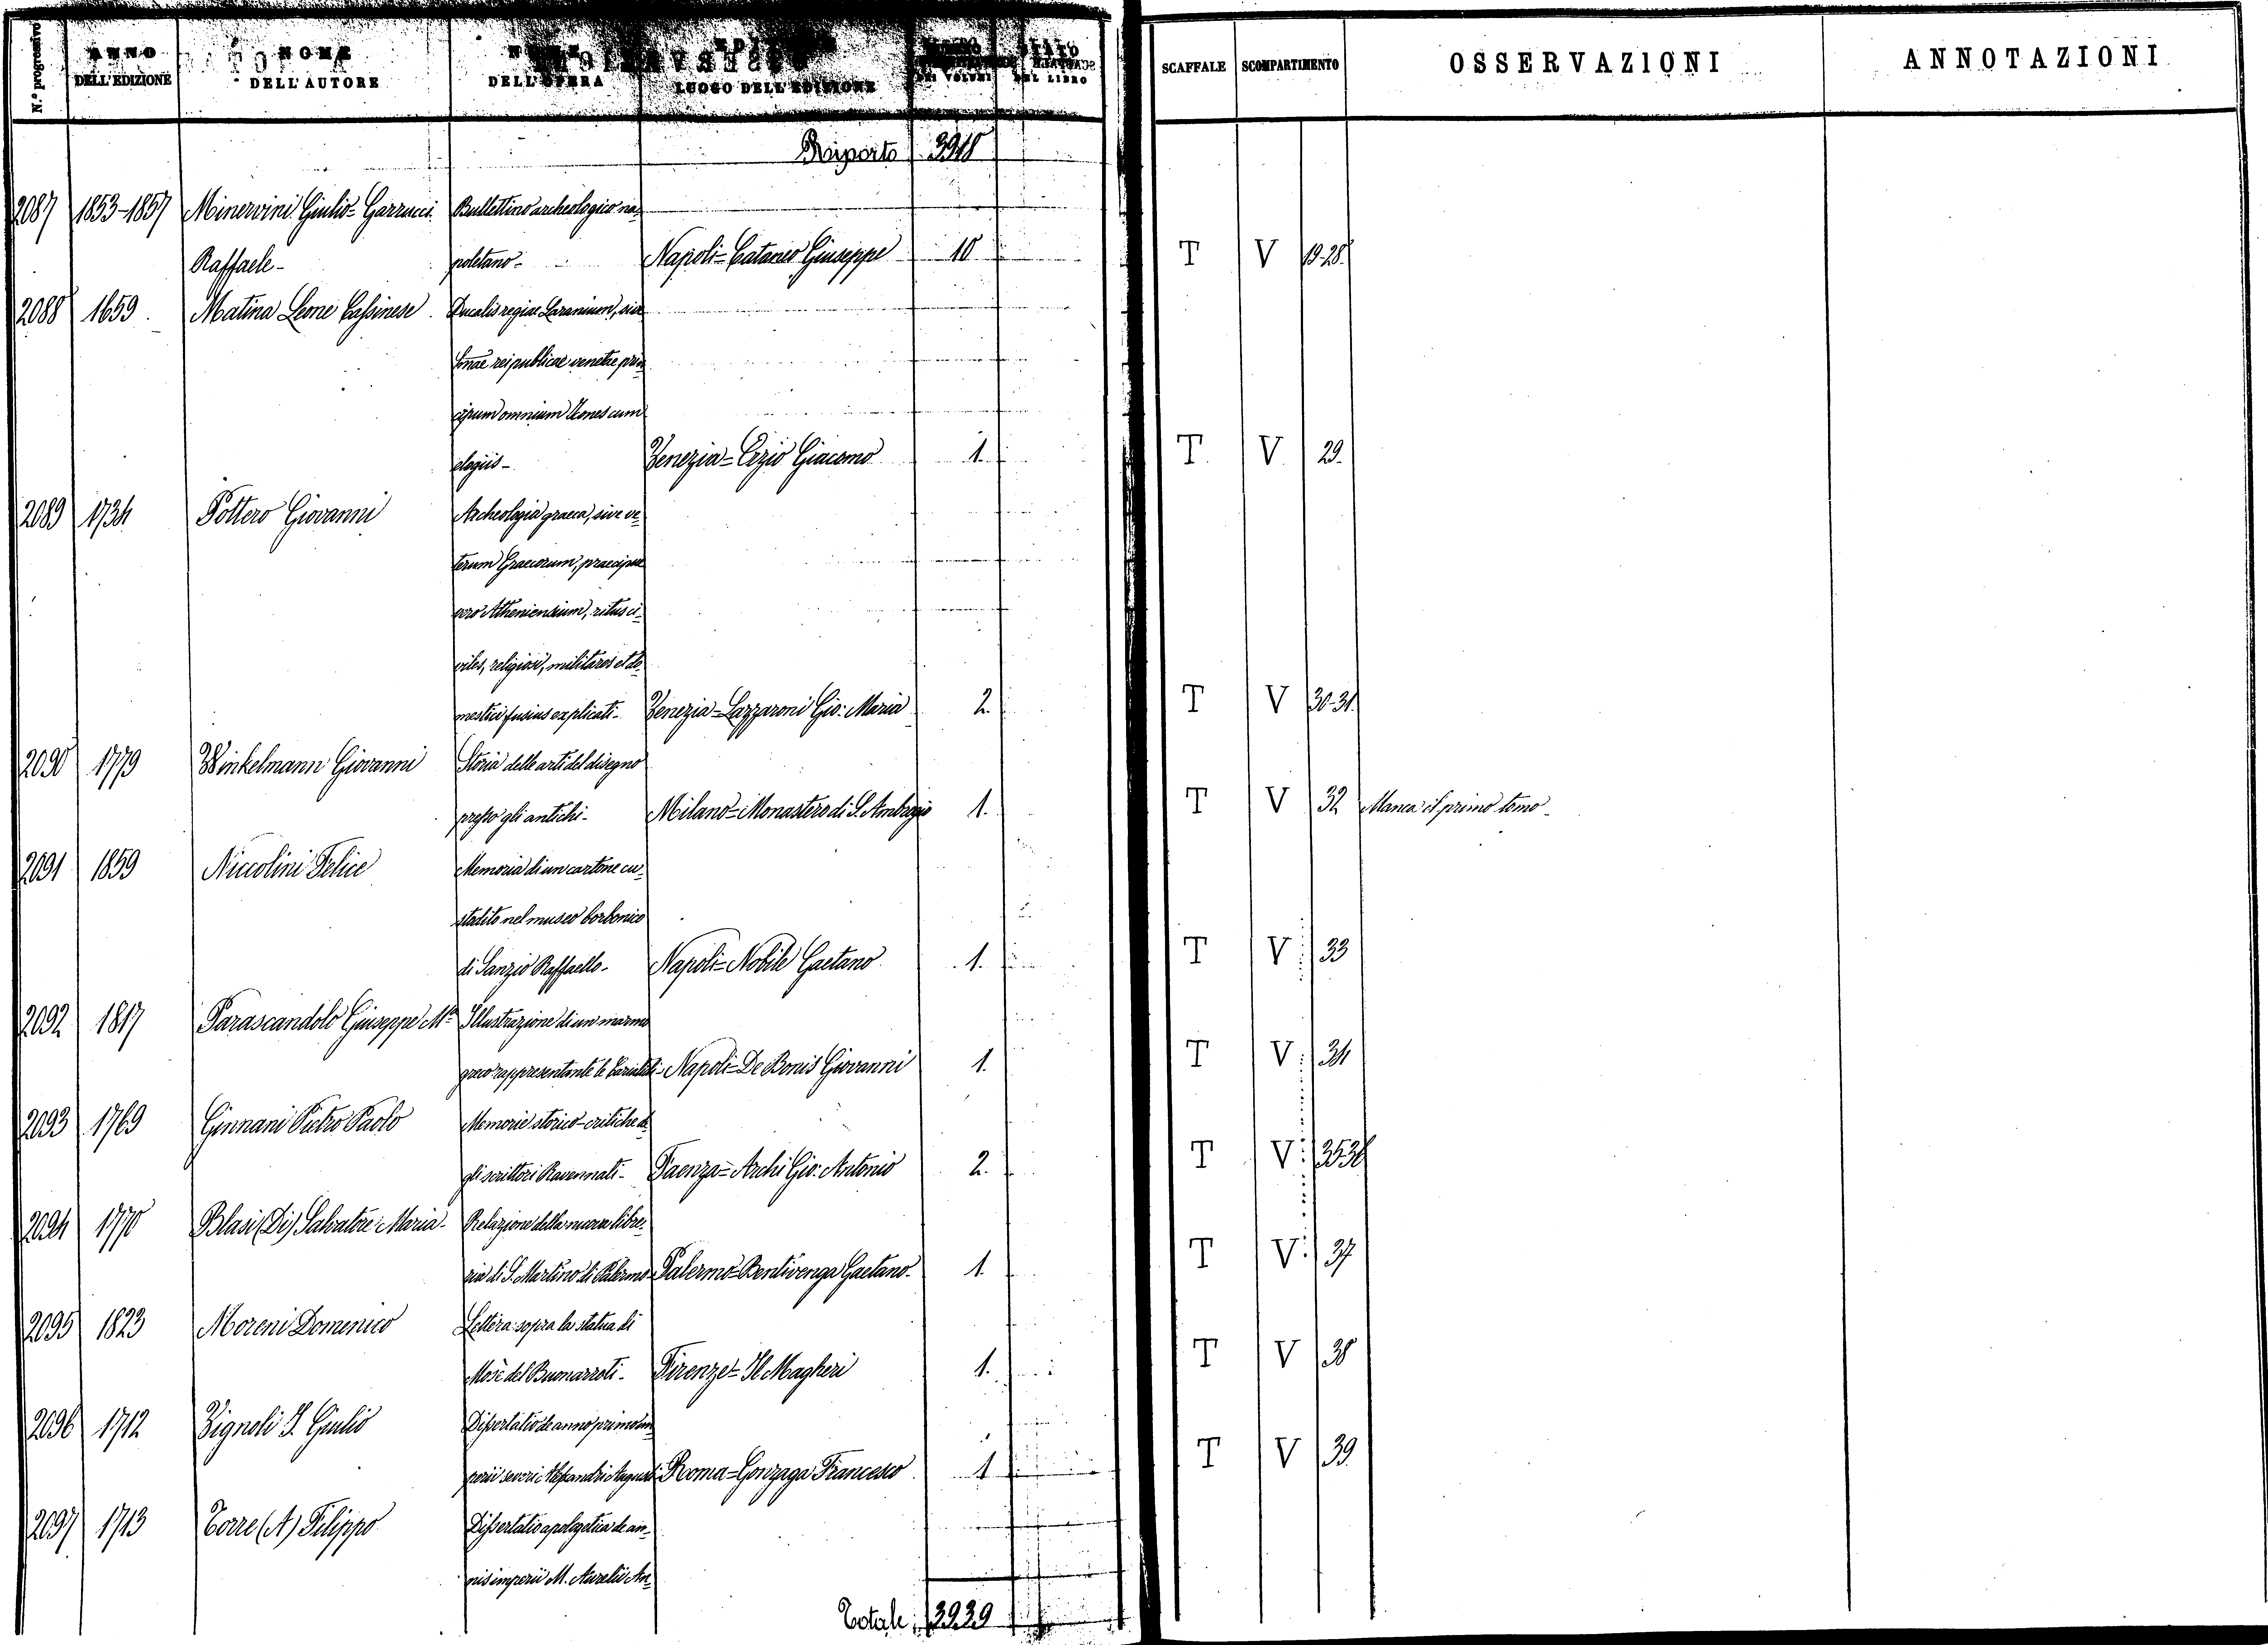 N.° progressivo ANNO DELL'EDIZIONE NOME DELL'AUTORE DELL'OPERA LUOGO DELL'EDIZIONE DEI VOLUMI DEL LIBRO SCAFFALE SCOMPARTIMENTO OSSERVAZIONI ANNOTAZIONI
Riporto 3918
2087 1853-1857 Minervini Giulio= Garrucci Bullettino archeologico na=
Raffaele- poletano- Napoli= Cataneo Giuseppe 10 T V 19-28.
2088 1659. Matina Leone Cassinese. Ducalis regiae Lararium, sive
reipublicae venetae prin
cipum omnium Icones cum
elogiis- Venezia= Giacomo 1. T V 29.
2089 1734 Pottero Giovanni Archeologia graeca, sive ve=
terum Graecorum, praecipue
vero Atheniensium, ritus ci=
viles, religiosi, militares et do=
mestici fusius explicati- Venezia= Lazzaroni Gio: Maria 2. T V 30-31.
2090 1779 Winkelmann Giovanni Storia delle arti del disegno
presso gli antichi- Milano= Monastero di S. Ambrogio 1. T V 32 Manca il primo tomo-
2091 1859 Niccolini Felice Memoria di un cartone cu=
stodito nel museo borbonico
di Sanzio Raffaello- Napoli= Nobile Gaetano 1. T V 33
2092 1817 Parascandolo Giuseppe Mª Illustrazione di un marmo
greco rappresentante le Cariatidi- Napoli= De Bonis Giovanni 1. T V 34
2093 1769 Ginnani Pietro Paolo Memorie storico-critiche de=
gli scrittori Ravennati- Faenza= Archi Gio: Antonio 2. T V 35-36
2094 1770 Blasi (Di) Salvatore Maria- Relazione della nuova libre=
ria di S. Martino di Palermo- Palermo= Bentivenga Gaetano- 1. T V 37
2095 1823 Moreni Domenico Lettera sopra la statua di
Mosè del Buonarroti- Firenze= Il Magheri 1. T V 38
2096 1712 Vignoli S. Giulio Dissertatio de anno primo im=
perii severi Alexandri Augusti- Roma= Gonzaga Francesco 1 T V 39
2097 1713 Torre (A) Filippo Dissertatio apologetica de an=
nis imperii M. Aurelii An=
Totale 3939